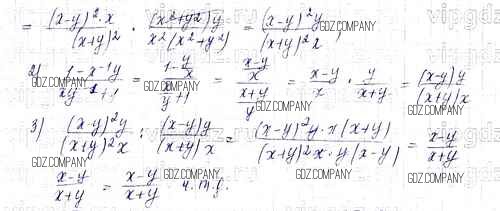 = (x-y)²·x / (x+y)² · (x²+y²)y / x²(x²+y²) = (x-y)²y / (x+y)²x ;
2) 1-x⁻¹y / xy⁻¹+1 = (1-y/x) / (x/y+1) = ((x-y)/x) / ((x+y)/y) = x-y / x · y / x+y = (x-y)y / (x+y)x
3) (x-y)²y / (x+y)²x : (x-y)y / (x+y)x = (x-y)²y·x(x+y) / (x+y)²x·y(x-y) = x-y / x+y
x-y / x+y = x-y / x+y ч.т.д.
GDZ.COMPANY
GDZ.COMPANY
GDZ.COMPANY
GDZ.COMPANY
GDZ.COMPANY
GDZ.COMPANY
GDZ.COMPANY
GDZ.COMPANY
GDZ.COMPANY